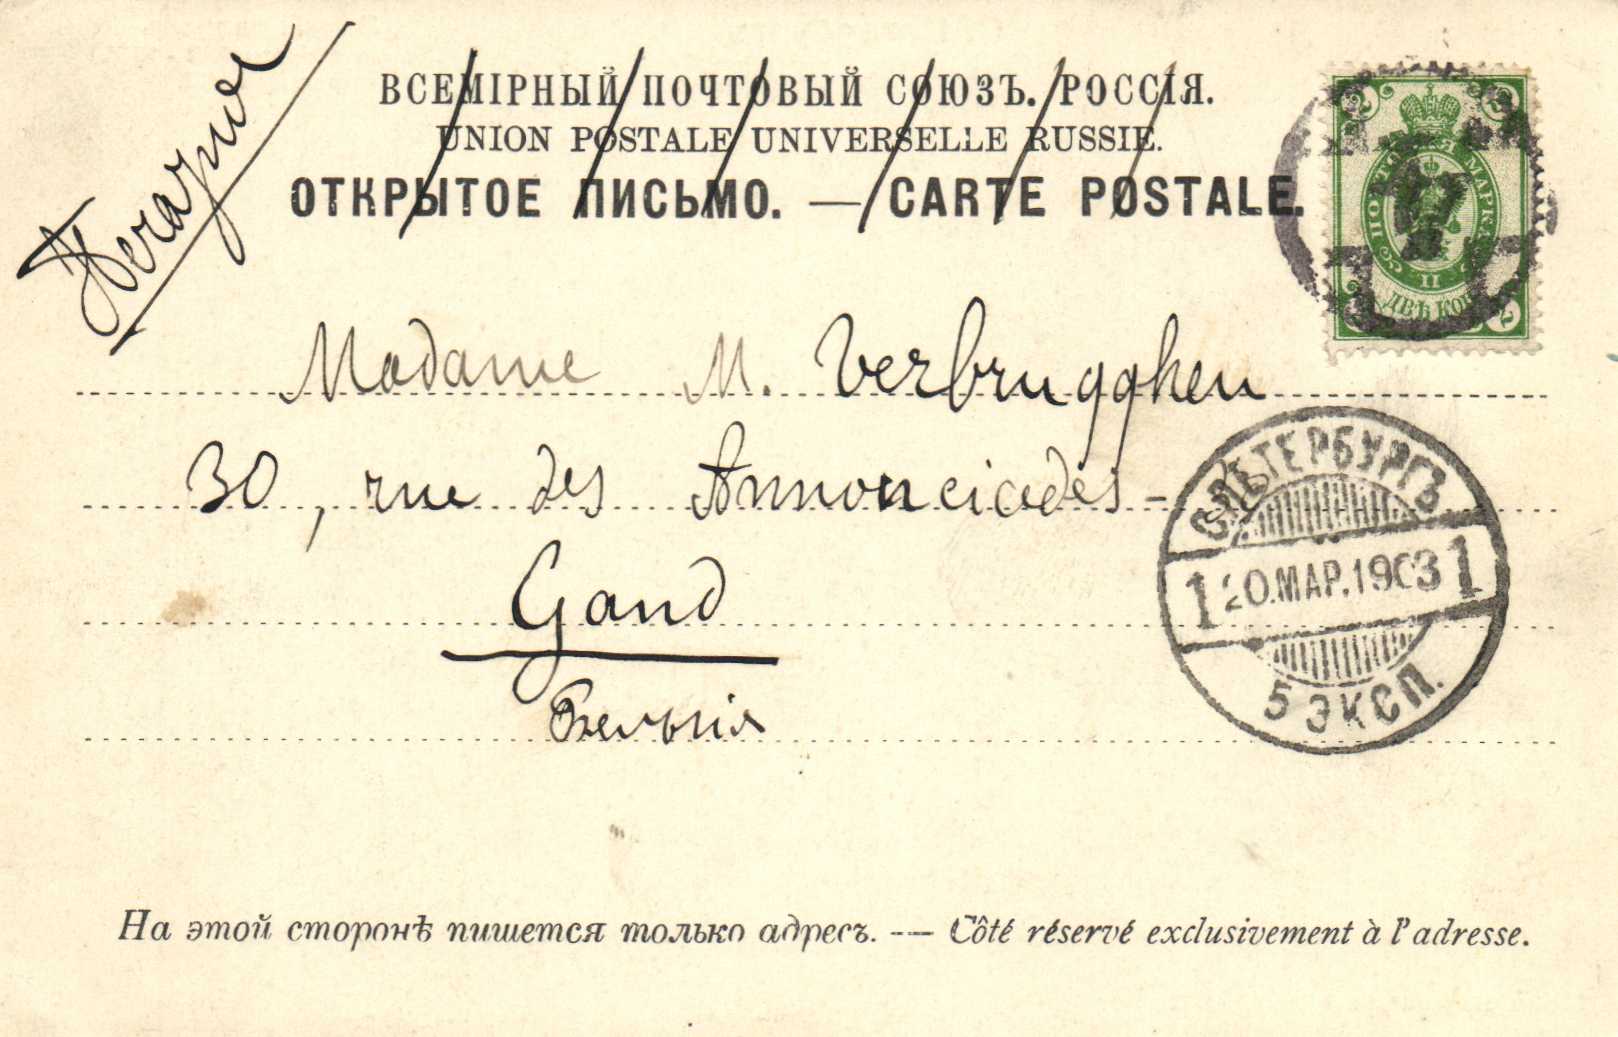 Печатное
ВСЕМІРНЫЙ ПОЧТОВЫЙ СОЮЗЪ. РОССІЯ.
UNION POSTALE UNIVERSELLE RUSSIE.
ОТКРЫТОЕ ПИСЬМО. — CARTE POSTALE.
ПОЧТОВАЯ МАРКА
ДВѢ КОП
Madame M. Verbrugghen
30, rue des Annonciades-
Gand
Бельгія
С.ПЕТЕРБУРГЪ
1 20.МАР.1903 1
5 ЭКСП.
На этой сторонѣ пишется только адресъ. -— Côté réservé exclusivement à l'adresse.